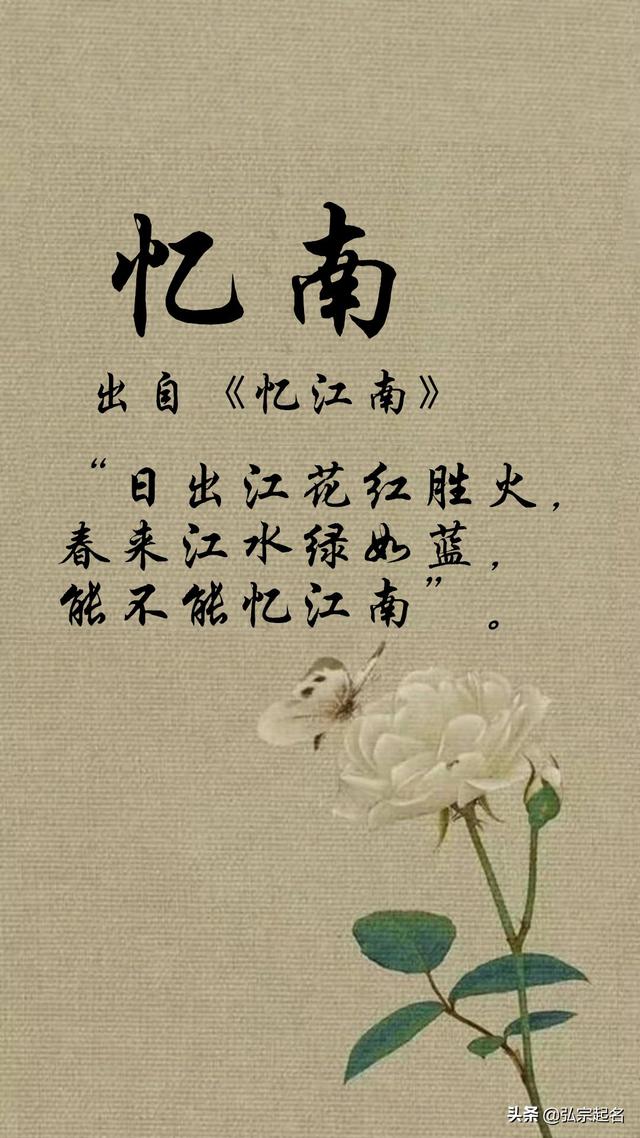 忆南
出自《忆江南》
“日出江花红胜火，
春来江水绿如蓝，
能不能忆江南”。
头条 @弘宗起名